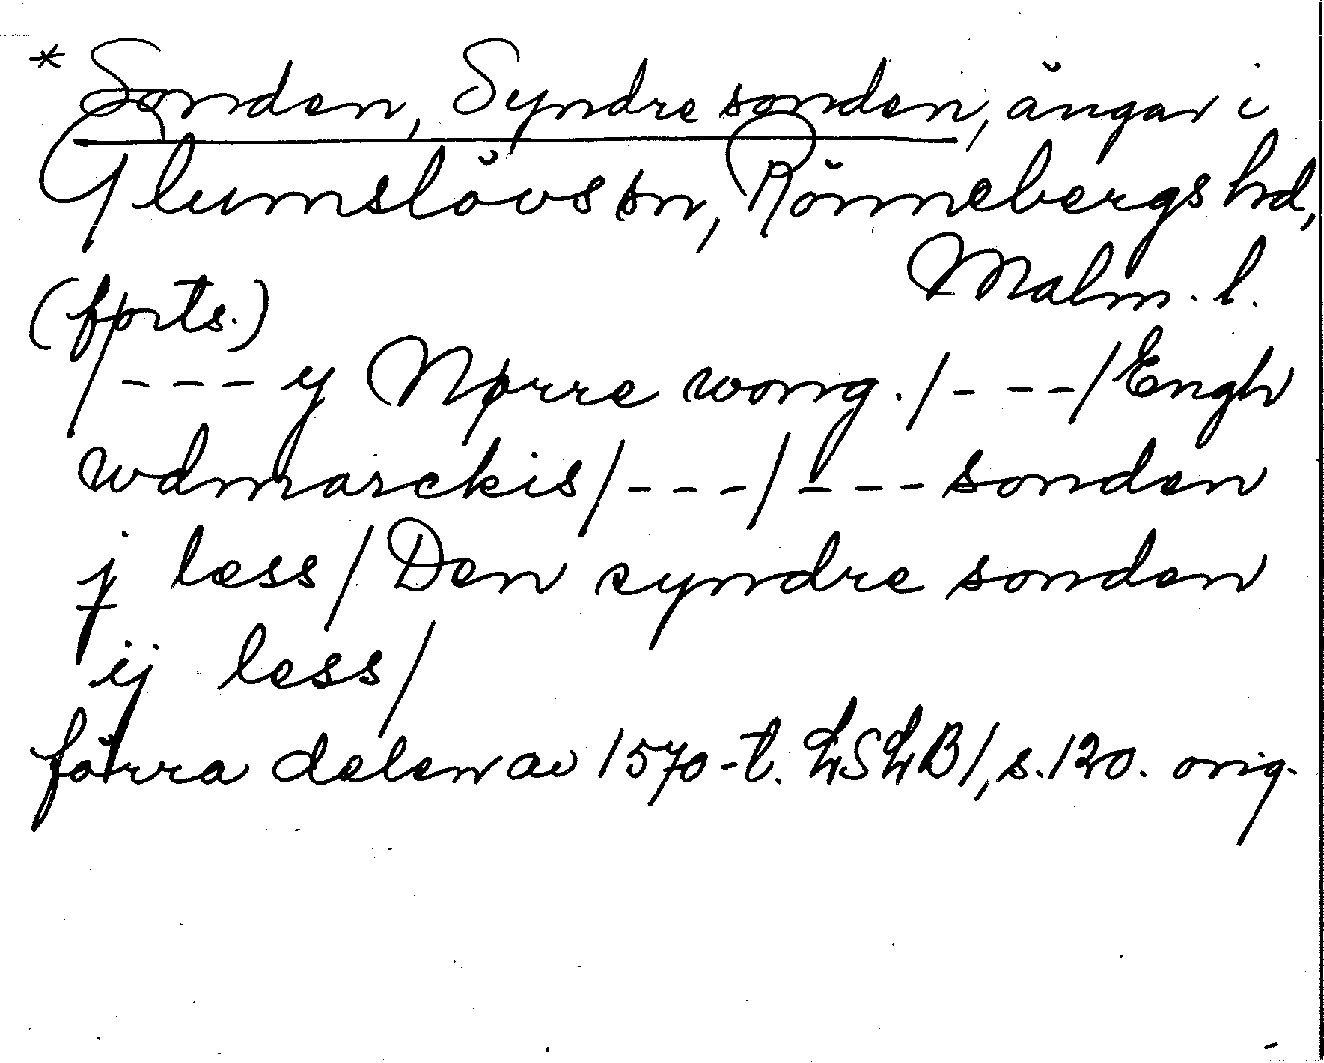 * Sonden, Syndre sonden, ängar i
Glumslövs sn, Rönnebergs hd,
Malm. l.
(forts.)
/ - - - y Nørre wong. / - - - / Engh
wdmarckis / - - - / - - - sonden
j less / Den syndre sonden
ij less /
förra delen av 1570-t. LSLB 1, s. 120. orig.